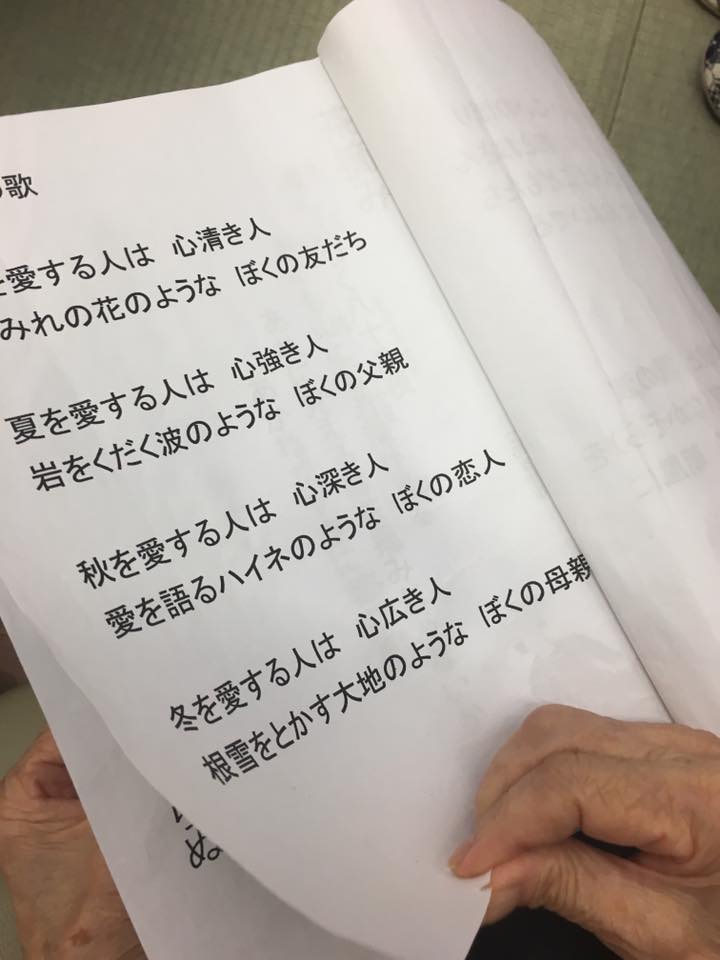 の歌
を愛する人は 心清き人
みれの花のような ぼくの友だち
夏を愛する人は 心強き人
岩をくだく波のような ぼくの父親
秋を愛する人は 心深き人
愛を語るハイネのような ぼくの恋人
冬を愛する人は 心広き人
根雪をとかす大地のような ぼくの母親
ぬ